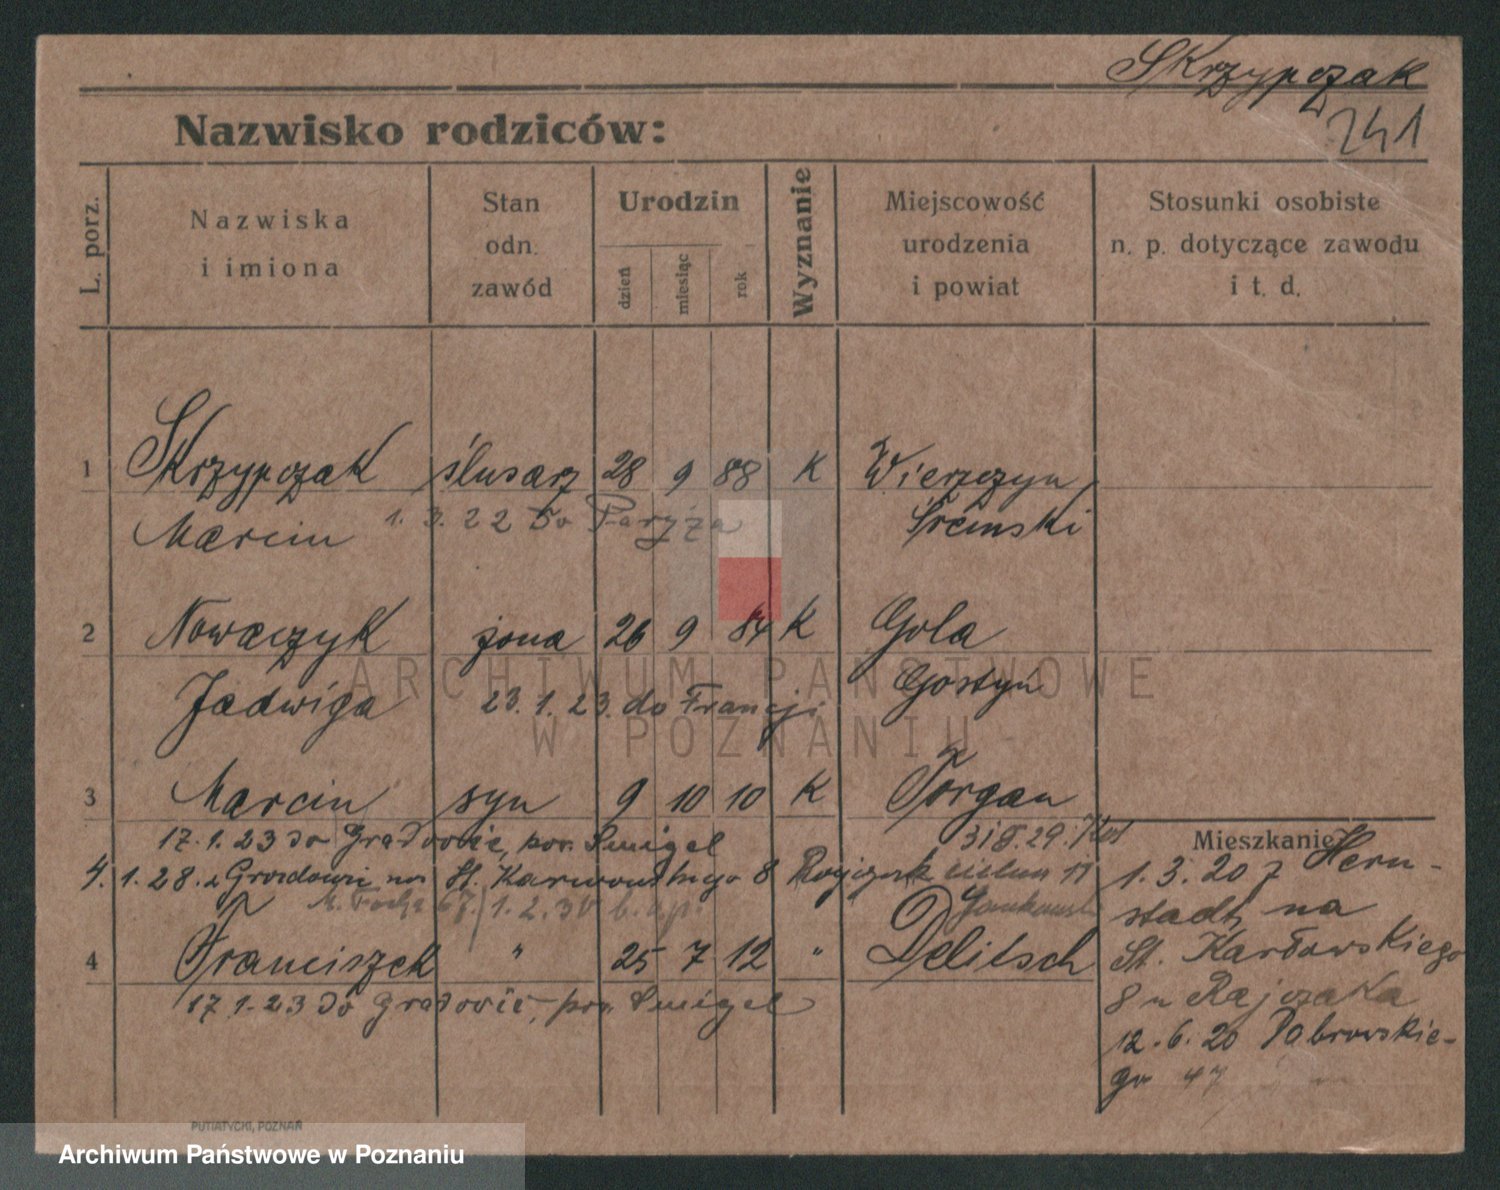 Skrzypczak
241
Nazwisko rodziców:
L. porz.
Nazwiska i imiona
Stan odn. zawód
Urodzin
dzień miesiąc rok
Wyznanie
Miejscowość urodzenia i powiat
Stosunki osobiste n. p. dotyczące zawodu i t. d.
1 Skrzypczak ślusarz 28 9 88 K Wierzczyn
Marcin 1. 3. 22 do Paryża Śremski
2 Nowaczyk żona 26 9 84 K Gola
Jadwiga 23. 1. 23. do Francji Gostyń
3 Marcin syn 9 10 10 K Torgau
17. 1. 23 do Gradowic, pow. Smigel
4. 1. 28. z Gradowic na St. Karwowskiego 8
1. 2. 30
4 Franciszek " 25 7 12 " Delitsch
17. 1. 23 do Gradowic, pow. Smigel
Mieszkanie
1. 3. 20 z Hernstadt, na
St. Karłowskiego
8 u Rajczaka
12. 6. 20 Dąbrowskiego 47
PUTIATYCKI, POZNAŃ
ARCHIWUM PAŃSTWOWE
W POZNANIU
Archiwum Państwowe w Poznaniu